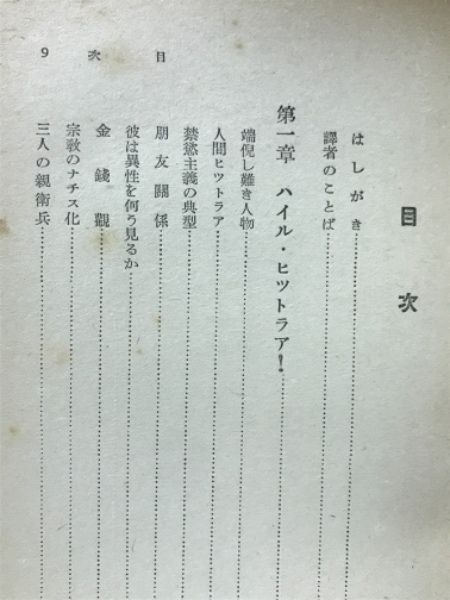 目次 9
目次
はしがき
譯者のことば
第一章 ハイル・ヒツトラア!
端倪し難き人物
人間ヒツトラア
禁慾主義の典型
朋友關係
彼は異性を何う見るか
金錢觀
宗敎のナチス化
三人の親衛兵